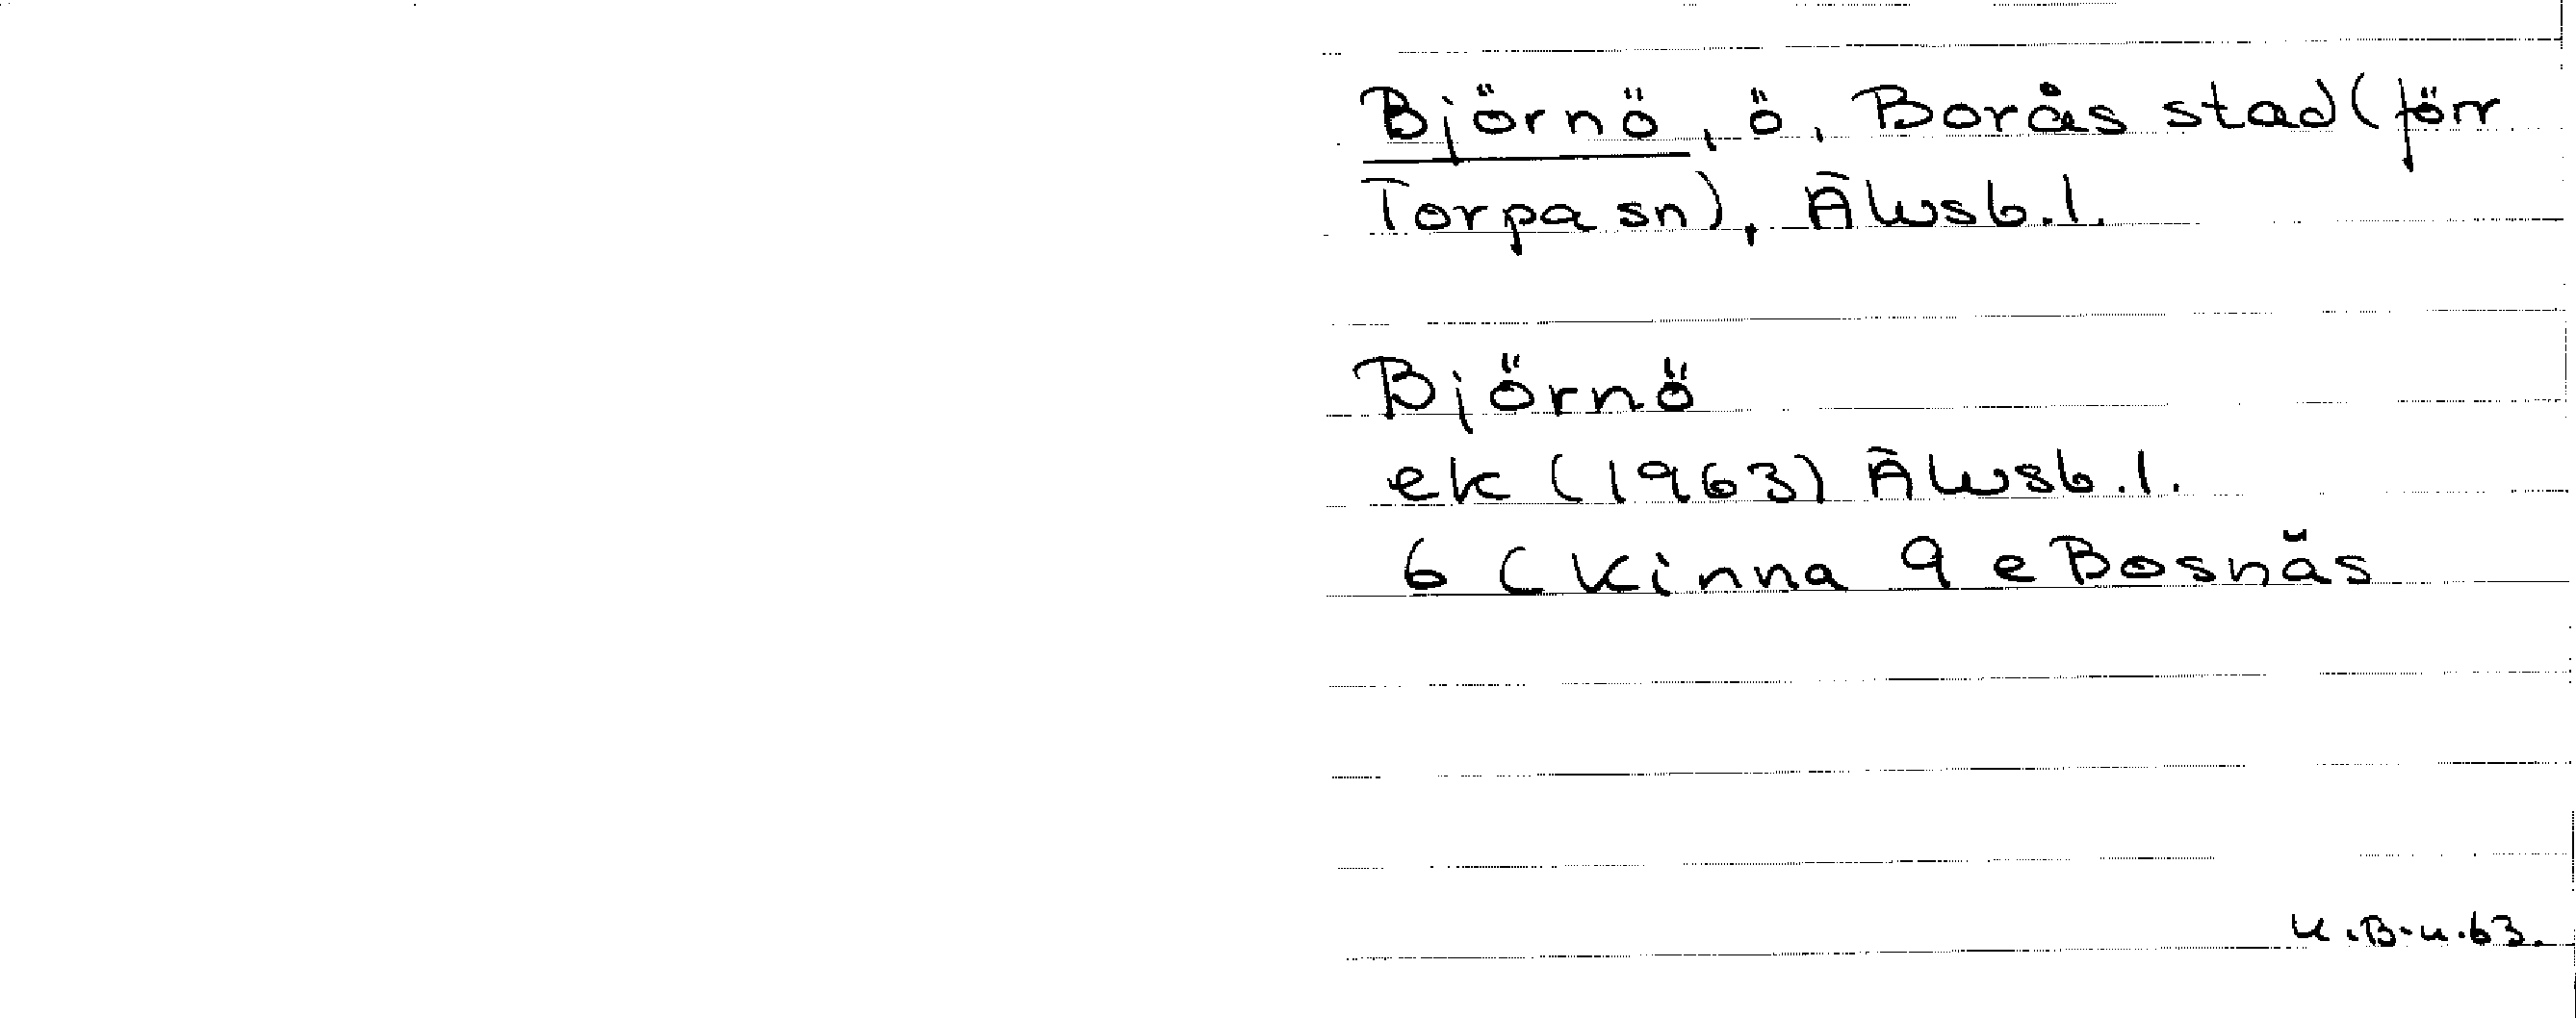 Björnö, ö, Borås stad (förr
Torpa sn), Älvsb.l.
Björnö
ek (1963) Älvsb.l.
6 C Kinna 9 e Bosnäs
U.B-u.63.